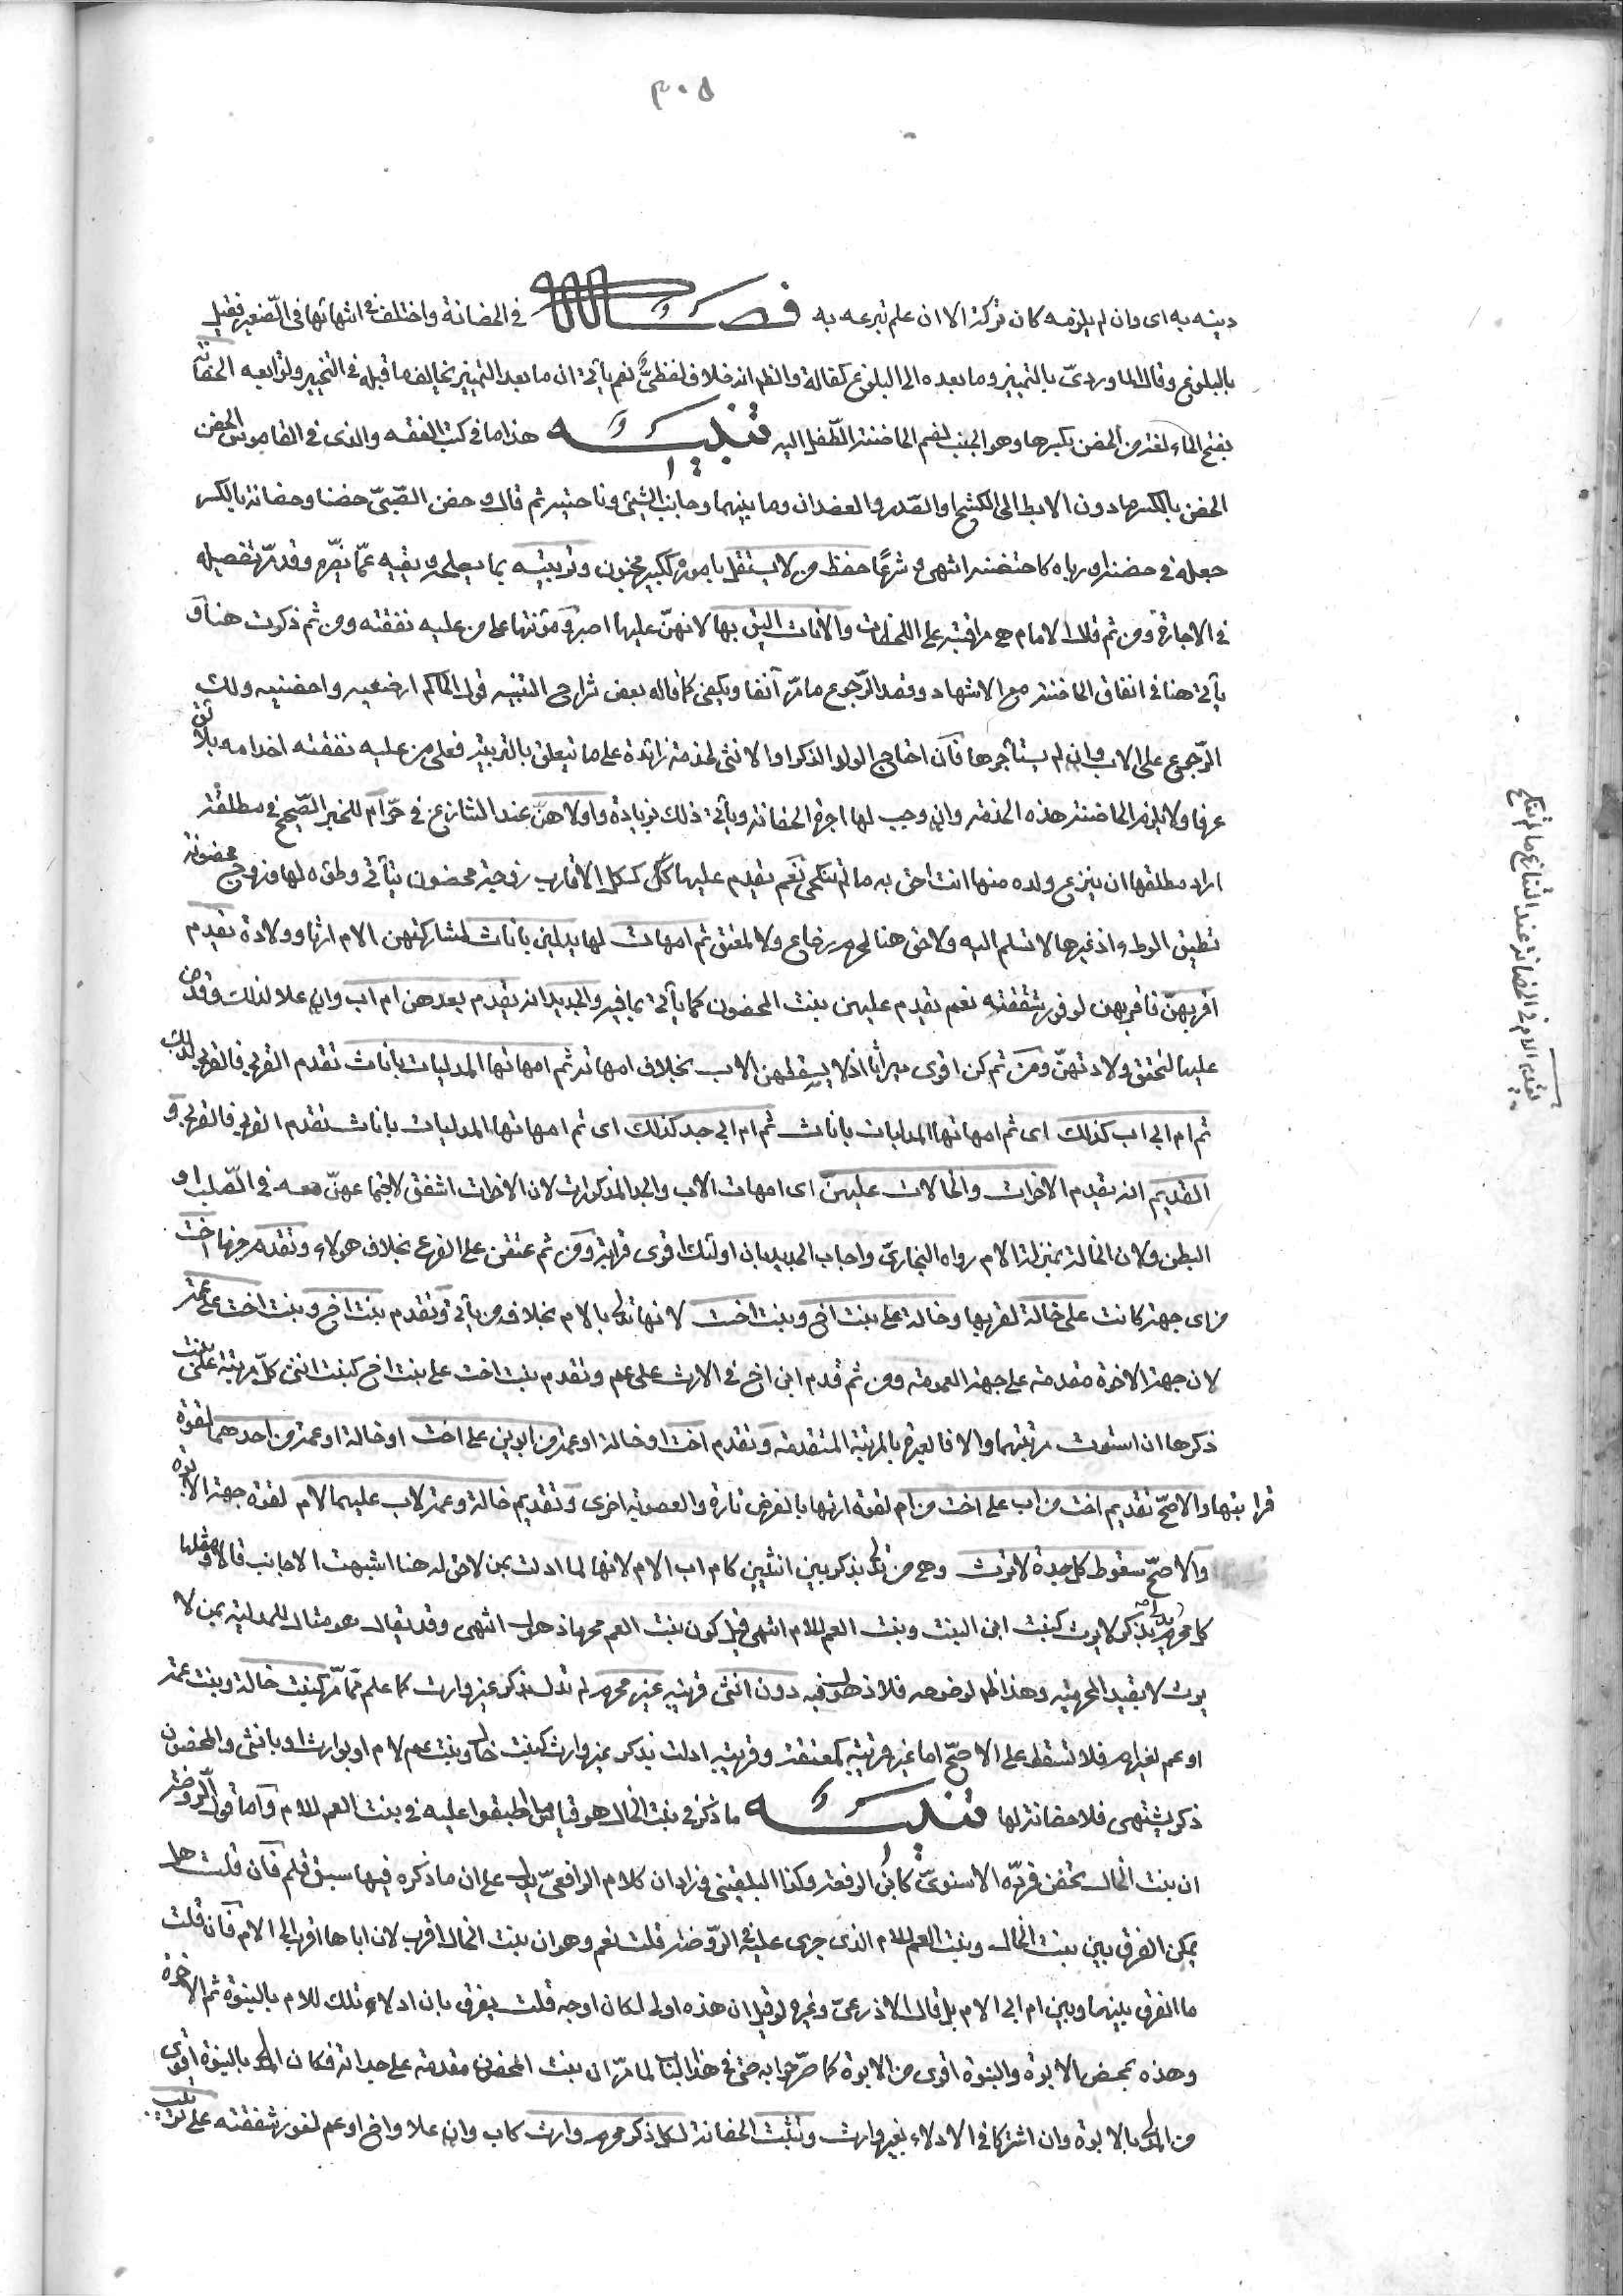 ٣٠٥
دينه به اى وان لم يلزمه كان تركة الا ان علم تبرعه به فصل في الحضانة واختلف في انتهائها في الصغير فقيل
بالبلوغ وقال الماوردىّ بالتمييز وما بعده الى البلوغ كفالة والظاهر انه خلاف لفظىّ نعم يأتى ان ما بعد التمييز يخالف ما قبله في التخيير وتوابعه الحضانة
بفتح الحاء لغة من الحضن بكسرها وهو الجنب لضم الحاضنة الطّفل اليه تنبيه هذا ما في كتب الفقه والذى في القاموس الحضن
الحضن بالكسر ما دون الابط الى الكشح او الصّدر والعضدان وما بينهما وجانب الشيئ وناحيته ثم قال وحضن الصّبىّ حضنا وحضانة بالكسر
جعله في حضنه او رباه كاحتضنه انتهى وشرعًا حفظ من لا يستقل باموره ككبير مجنون وتربيته بما يصلحه ويقيه عمّا يضرّه وقد مرّ تفصيله
في الاجارة ومن ثم قال الامام هى مراقبته على اللحظات والاناث اليق بها لانهنّ عليها اصبر ومؤنتها على من عليه نفقته ومن ثم ذكرت هنا و
يأتى هنا في انفاق الحاضنة مع الاشهاد وقصد الرّجوع ما مرّ آنفا ويكفى كما قاله بعض شراح التنبيه قول الحاكم ارضعيه واحضنيه ولك
الرّجوع على الاب وان لم يستأجرها فان احتاج الولد الذكر او الانثى لخدمة زائدة على ما يتعلق بالتربية فعلى من عليه نفقته اخدامه بلائق
عرفا ولا يلزم الحاضنة هذه الخدمة وان وجب لها اجرة الحضانة ويأتى ذلك بزيادة واولاهنّ عند التنازع في حرّ ام للخبر الصّحيح في مطلقة
اراد مطلقها ان ينزع ولده منها انت احق به ما لم تنكحى نعم يقدم عليها ككل الاقارب زوجة محضون يتأتى وطؤه لها وزوج محضونة
تطيق الوطء اذ غيرها لا تسلم اليه ولا حق هنا لمحرم رضاع ولا لمعتق ثم امهات لها يدلين باناث لمشاركتهن الام ارثا وولادة يقدم
اقربهنّ فاقربهن لوفور شفقته نعم يقدم عليهن بنت المحضون كما يأتى بما فيه والجديد انه يقدم بعدهن ام اب وان علا لذلك وقدمن
عليها لتحقق ولادتهنّ ومن ثم كن اقوى ميراثا اذ لا يسقطهن الاب بخلاف امهاته ثم امهاتها المدليات باناث تقدم القربى فالقربى لذلك
ثم ام ابى اب كذلك اى ثم امهاتها المدليات باناث ثم ام ابى جد كذلك اى ثم امهاتها المدليات باناث تقدم القربى فالقربى و
القديم انه يقدم الاخوات والخالات عليهنّ اى امهات الاب والجد المذكورات لان الاخوات اشفق لاجتماعهنّ معه في الصّلب او
البطن ولان الخالة بمنزلة الام رواه البخارىّ واجاب الجديد بان اولئك اقوى قرابة ومن ثم عتقن على الفرع بخلاف هولاء وتقدم جزما اخت
من اى جهة كانت على خالة لقربها وخالة على بنت اخ وبنت اخت لانها تدلى بالام بخلاف من يأتى وتقدم بنت اخ وبنت اخت على عمة
لان جهة الاخوة مقدمة على جهة العمومة ومن ثم قدم ابن اخ في الارث على عم وتقدم بنت اخت على بنت اخ كبنت انثى كلّ مرتبة على بنت
ذكرها ان استوت مرتبتهما والا فالعبرة بالمرتبة المتقدمة وتقدم اخت او خالة او عمة من ابوين على اخت او خالة او عمة من احدهما لقوة
قرابتها والاصحّ تقديم اخت من اب على اخت من ام لقوة ارثها بالفرض تارة والعصوبة اخرى وتقديم خالة وعمة لاب عليهما لام لقوة جهة الابوة
والاصحّ سقوط كل جدة لا ترث وهى من تدلى بذكر بين انثيين كام اب الام لانها لما ادلت بمن لا حق له هنا اشبهت الاجانب قالا ومثلها
كل محرم يدلى بذكر لا يرث كبنت ابن البنت وبنت العم للام انتهى قيل كون بنت العم محرما ذهول انتهى وقد يقال هو مثال للمدلية بمن لا
يرث لا بقيد المحرمية وهذا ظاهر لوضوحه فلا ذهول فيه دون انثى قريبة غير محرم لم تدل بذكر غير وارث كما علم ممّا مرّ كبنت خالة وبنت عمة
او عم لغير ام فلا تسقط على الاصحّ اما غير قريبة كمعتقة وقريبة ادلت بذكر غير وارث كبنت خال وبنت عم لام او بوارث او بانثى والمحضون
ذكر يشتهى فلا حضانة لها تنبيه ما ذكر في بنت الخال هو قياس ما اطبقوا عليه في بنت العم للام واما قول الرّوضة
ان بنت الخال تحضن فردّه الاسنوىّ كابن الرفعة وكذا البلقينى وزاد ان كلام الرافعىّ يدل على ان ما ذكره فيها سبق قلم فان قلت هل
يمكن الفرق بين بنت الخال وبنت العم للام الذى جرى عليه في الرّوضة قلت نعم وهو ان بنت الخال اقرب لان اباها اقرب الى الام فان قلت
ما الفرق بينهما وبين ام ابى الام بل قال الاذرعىّ وغيره لو قيل ان هذه اولى لكان اوجه قلت يفرق بان ادلاء تلك للام بالبنوة ثم الاخوة
وهذه بمحض الابوة والبنوة اقوى من الابوة كما صرّحوا به حتى في هذا الباب لما مرّ ان بنت المحضون مقدمة على جداته فكان المدلى بالبنوة اقوى
من المدلى بالابوة وان اشتركا في الادلاء بغير وارث وتثبت الحضانة لكل ذكر محرم وارث كاب وان علا واخ او عم لوفور شفقته على ترتيب
يقدم الام في الحضانة عند التنازع ما لم تنكح